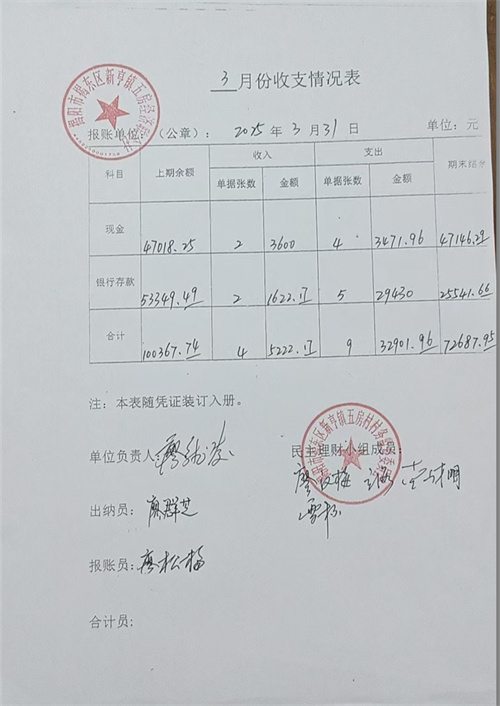 3月份收支情况表
报账单位:（公章）: 2025年3月31日 单位: 元
科目 上期余额 收入 支出 期末结余
单据张数 金额 单据张数 金额
现金 47018.25 2 3600 4 3471.96 47146.29
银行存款 53349.49 2 1622.17 5 29430 25541.66
合计 100367.74 4 5222.17 9 32901.96 72687.95
注: 本表随凭证装订入册。
单位负责人 民主理财小组成员:
出纳员: 廖群芝
报账员: 廖松梅
合计员: